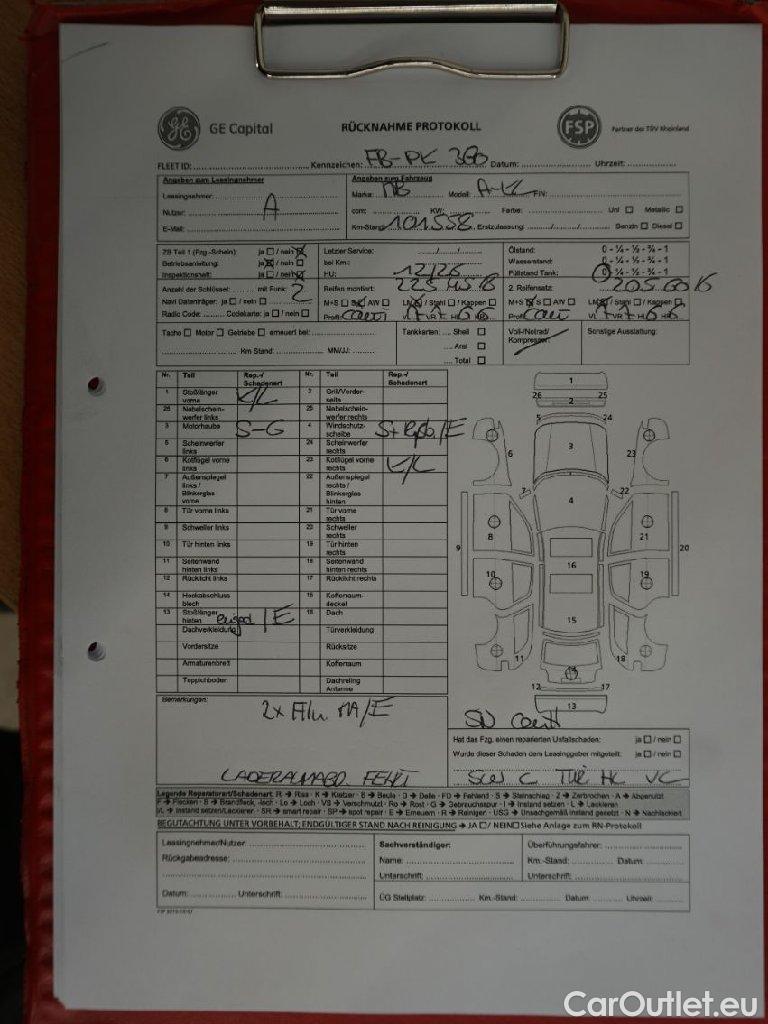 GE Capital RÜCKNAHME PROTOKOLL FSP Partner der TÜV Rheinland
FLEET ID: Kennzeichen: FB-PK 360 Datum: Uhrzeit:
Angaben zum Leasingnehmer Angaben zum Fahrzeug
Leasingnehmer: Marke: MB Model: A-Kl FIN:
Nutzer: A ccm: KW: Farbe: Uni Metallic
E-Mail: Km-Stand: 101558 Erstzulassung: / / Benzin Diesel
ZB Teil 1 (Fzg.-Schein): ja / nein Letzter Service: / / Ölstand: 0 - ¼ - ½ - ¾ - 1
Betriebsanleitung: ja / nein bei Km: Wasserstand: 0 - ¼ - ½ - ¾ - 1
Inspektionsheft: ja / nein HU: 12/25 Füllstand Tank: 0 - ¼ - ½ - ¾ - 1
Anzahl der Schlüssel: mit Funk: 2 Reifen montiert: 225 45 18 2. Reifensatz: 205 60 16
Navi Datenträger: ja / nein M+S S AW LM / Stahl / Kappen M+S S AW LM / Stahl / Kappen
Radio Code: Codekarte: ja / nein Profil: Conti Profil: Conti
Tacho Motor Getriebe erneuert bei: Tankkarten: Shell Voll-/Notrad/ Kompressor: Sonstige Ausstattung:
Km Stand: MN/JJ: Aral
Total
Nr. Teil Rep.-/ Schadenart Nr. Teil Rep.-/ Schadenart
1 Stoßfänger vorne E/L 2 Grill/Vorderseite
26 Nebelscheinwerfer links 25 Nebelscheinwerfer rechts
3 Motorhaube S-G 4 Windschutzscheibe S+ /E
5 Scheinwerfer links 24 Scheinwerfer rechts
6 Kotflügel vorne links 23 Kotflügel vorne rechts E/L
7 Außenspiegel links / Blinkerglas vorne 22 Außenspiegel rechts / Blinkerglas hinten
8 Tür vorne links 21 Tür vorne rechts
9 Schweller links 20 Schweller rechts
10 Tür hinten links 19 Tür hinten rechts
11 Seitenwand hinten links 18 Seitenwand hinten rechts
12 Rücklicht links 17 Rücklicht rechts
14 Heckabschlussblech 15 Kofferraumdeckel
13 Stoßfänger hinten /E 16 Dach
Dachverkleidung Türverkleidung
Vordersitze Rücksitze
Armaturenbrett Kofferraum
Teppichboden Dachreling Antenne
Bemerkungen:
2x MA/E
FEHLT
Hat das Fzg. einen reparierten Unfallschaden: ja / nein
Wurde dieser Schaden dem Leasinggeber mitgeteilt: ja / nein
Legende Reparaturart/Schadenart: R → Riss - K → Kratzer - B → Beule - D → Delle - FD → Fehlend - S → Steinschlag - Z → Zerbrochen - A → Abgenutzt
F → Flecken - B → Brandfleck, -loch - Lo → Loch - VS → Verschmutzt - Ro → Rost - G → Gebrauchsspur - I → Instand setzen - L → Lackieren
I/L → Instand setzen/Lackieren - SR → smart repair - SP → spot repair - E → Erneuern - R → Reinigen - USG → Unsachgemäß instand gesetzt - N → Nachlackiert
BEGUTACHTUNG UNTER VORBEHALT; ENDGÜLTIGER STAND NACH REINIGUNG → JA / NEIN Siehe Anlage zum RN-Protokoll
Leasingnehmer/Nutzer Sachverständiger: Überführungsfahrer:
Rückgabeadresse: Name: Km.-Stand: Datum:
Unterschrift: Unterschrift:
Datum: Unterschrift: ÜG Stellplatz: Km.-Stand: Datum: Uhrzeit:
CarOutlet.eu